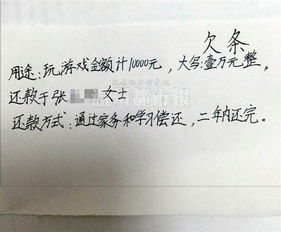 欠条
用途：玩游戏金额计10000元，大写：壹万元整。
还款于张 女士
还款方式：通过家务和学习偿还，二年内还完。